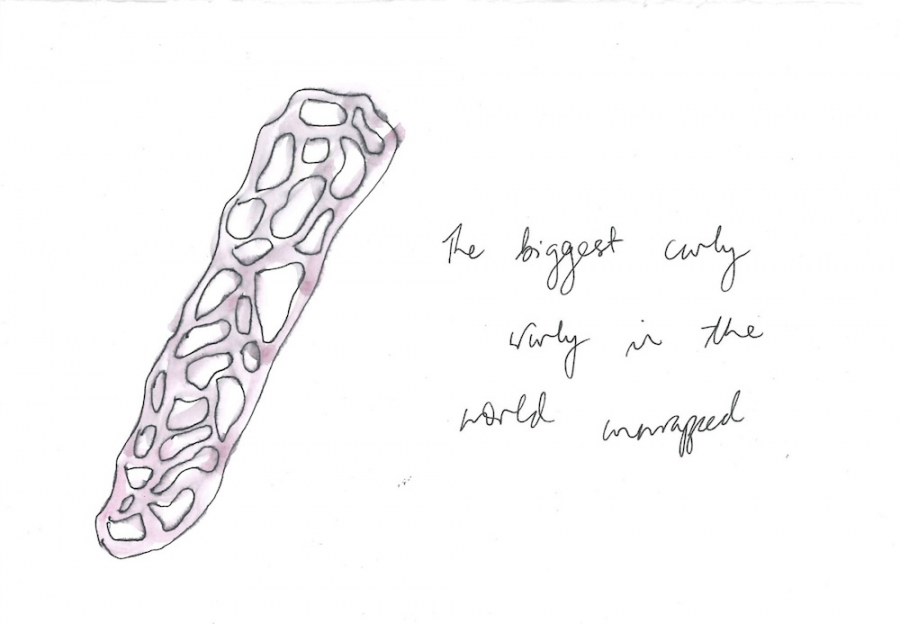 The biggest curly
wurly in the
world unwrapped